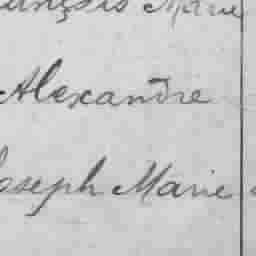 ançois Marie
Alexandre
Joseph Marie